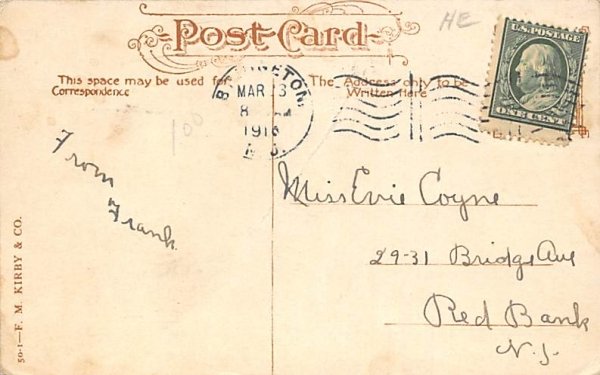 Post Card
HE
U.S. POSTAGE
ONE CENT
This space may be used for
Correspondence
The Address only to be
Written Here
MAR
8
N.J.
100
From
Frank
Miss Evie Coyne
29-31 Bridge Ave
Red Bank
N.J.
50-1—F. M. KIRBY & CO.